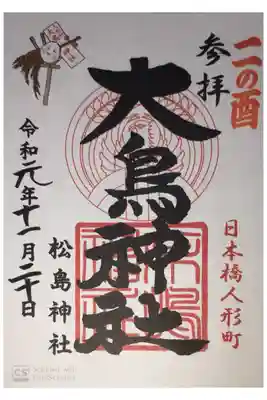 二の酉
参拝
日本橋人形町
大鳥神社
松島神社
令和元年十一月二十日
CS